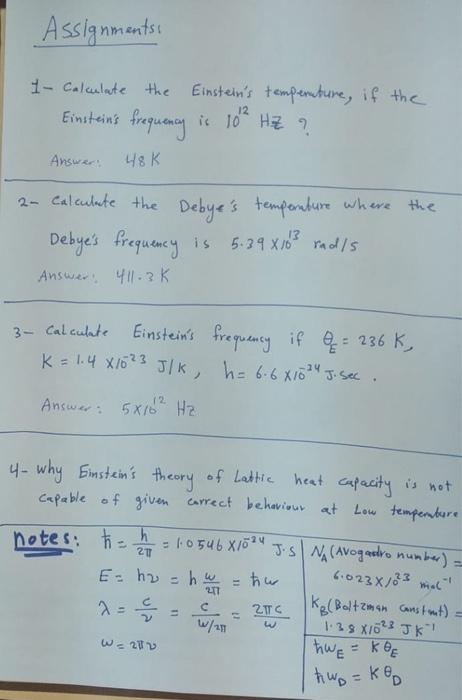 Assignments:
1- Calculate the Einstein's temperature, if the
Einstein's frequency is 10¹² HZ ?
Answer: 48 K
2- Calculate the Debye's temperature where the
Debye's frequency is 5.39 X10¹³ rad/s
Answer: 411.3 K
3- Calculate Einstein's frequency if θ_E = 236 K,
K = 1.4 X10⁻²³ J/K, h = 6.6 X10⁻³⁴ J.sec.
Answer: 5X10¹² Hz
4- Why Einstein's theory of Lattic heat capacity is not
capable of given correct behaviour at Low temperature
notes: ħ = h/2π = 1.0546 X10⁻³⁴ J.S
E = hν = h ω/2π = ħω
λ = c/ν = c/(ω/2π) = 2πc/ω
ω = 2πν
N_A (Avogadro number) =
6.023X10²³ mol⁻¹
K_B (Boltzman constant) =
1.38 X10⁻²³ JK⁻¹
ħω_E = Kθ_E
ħω_D = Kθ_D